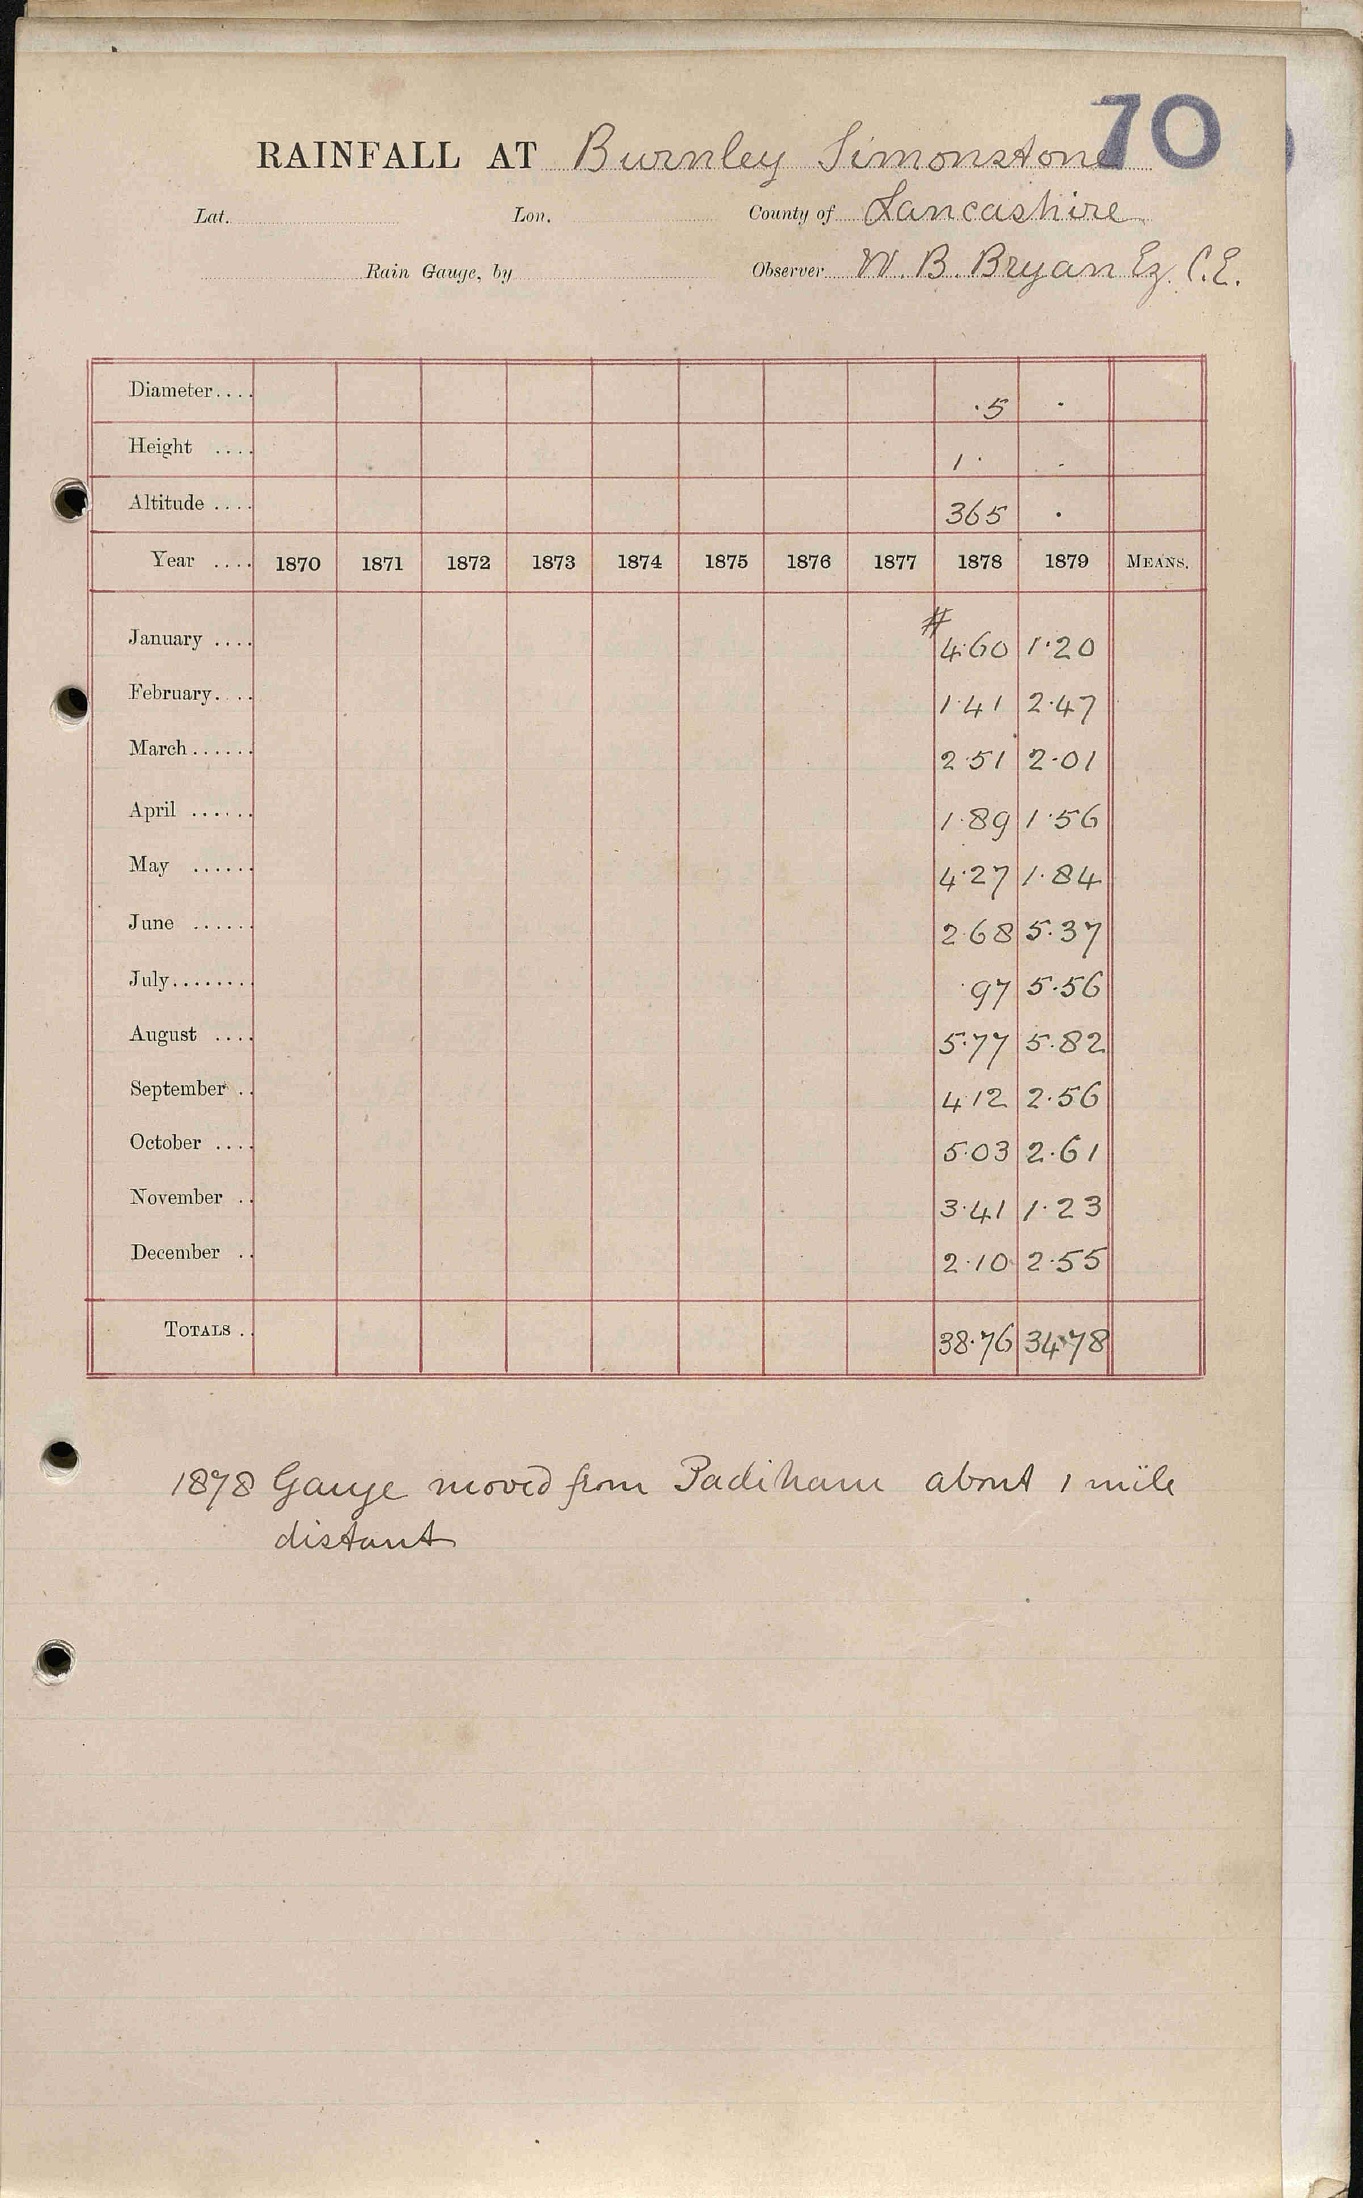 70
RAINFALL AT Burnley Simonstone
Lat. Lon. County of Lancashire
Rain Gauge, by Observer W. B. Bryan Ez. C.E.
Diameter.... ·5 ·
Height .... 1· ·
Altitude .... 365 ·
Year .... 1870 1871 1872 1873 1874 1875 1876 1877 1878 1879 MEANS.
#
January .... 4·60 1·20
February.... 1·41 2·47
March...... 2·51 2·01
April ...... 1·89 1·56
May ...... 4·27 1·84
June ...... 2·68 5·37
July........ ·97 5·56
August .... 5·77 5·82
September .. 4·12 2·56
October .... 5·03 2·61
November .. 3·41 1·23
December .. 2·10 2·55
TOTALS .. 38·76 34·78
1878 Gauge moved from Padiham about 1 mile
distant